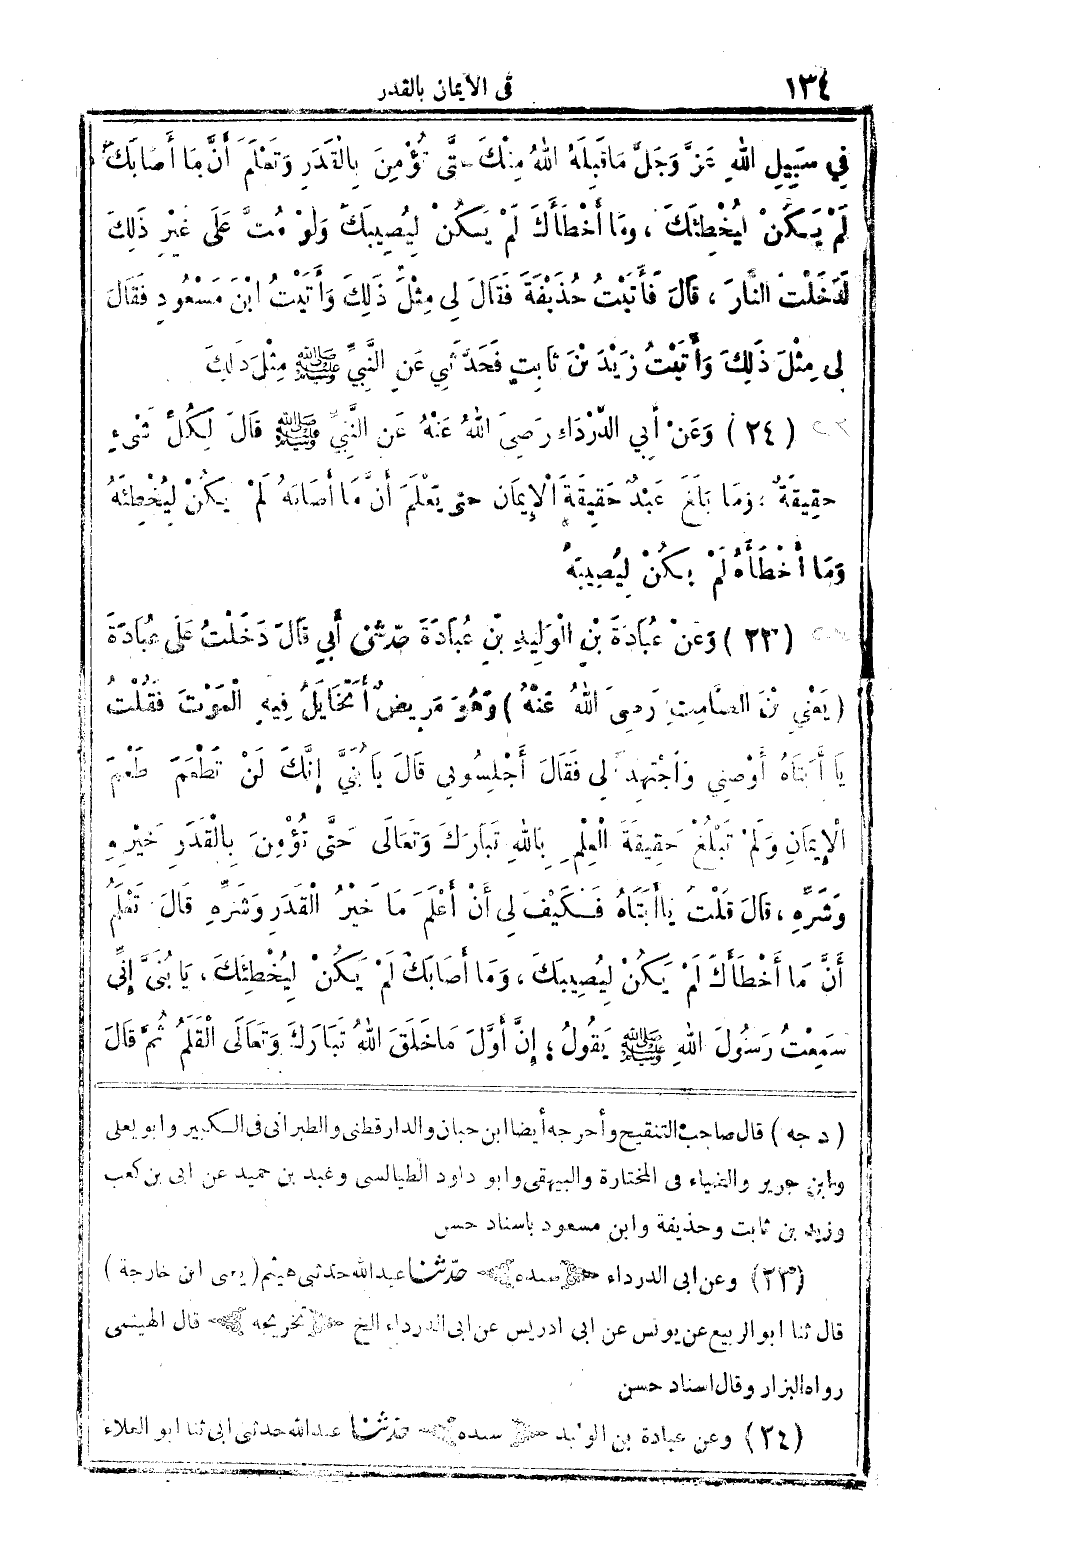 ١٣٤
فى الإيمان بالقدر
فِي سَبِيلِ اللهِ عَزَّ وَجَلَّ مَا قَبِلَهُ اللهُ مِنْكَ حَتَّى تُؤْمِنَ بِالْقَدَرِ وَتَعْلَمَ أَنَّ مَا أَصَابَكَ
لَمْ يَكُنْ لِيُخْطِئَكَ ، وَمَا أَخْطَأَكَ لَمْ يَكُنْ لِيُصِيبَكَ وَلَوْ مُتَّ عَلَى غَيْرِ ذَلِكَ
لَدَخَلْتَ النَّارَ ، قَالَ فَأَتَيْتُ حُذَيْفَةَ فَقَالَ لِي مِثْلَ ذَلِكَ وَأَتَيْتُ ابْنَ مَسْعُودٍ فَقَالَ
لِى مِثْلَ ذَلِكَ وَأَتَيْتُ زَيْدَ بْنَ ثَابِتٍ فَحَدَّثَنِي عَنِ النَّبِيِّ ﷺ مِثْلَ ذَلِكَ
(٢٤) وَعَنْ أَبِي الدَّرْدَاءِ رَضِىَ اللهُ عَنْهُ عَنِ النَّبِيِّ ﷺ قَالَ لِكُلِّ شَىْءٍ
حَقِيقَةٌ ، وَمَا بَلَغَ عَبْدٌ حَقِيقَةَ الْإِيمَانِ حَتَّى يَعْلَمَ أَنَّ مَا أَصَابَهُ لَمْ يَكُنْ لِيُخْطِئَهُ
وَمَا أَخْطَأَهُ لَمْ يَكُنْ لِيُصِيبَهُ
(٢٣) وَعَنْ عُبَادَةَ بْنِ الْوَلِيدِ بْنِ عُبَادَةَ حَدَّثَنِى أَبِي قَالَ دَخَلْتُ عَلَى عُبَادَةَ
(يَعْنِي بْنَ الصَّامِتِ رَضِىَ اللهُ عَنْهُ) وَهُوَ مَرِيضٌ أَتَخَايَلُ فِيهِ الْمَوْتَ فَقُلْتُ
يَا أَبَتَاهُ أَوْصِنِي وَاجْتَهِدْ لِى فَقَالَ أَجْلِسُونِي قَالَ يَا بُنَيَّ إِنَّكَ لَنْ تَطْعَمَ طَعْمَ
الْإِيمَانِ وَلَمْ تَبْلُغْ حَقِيقَةَ الْعِلْمِ بِاللهِ تَبَارَكَ وَتَعَالَى حَتَّى تُؤْمِنَ بِالْقَدَرِ خَيْرِهِ
وَشَرِّهِ ، قَالَ قُلْتُ يَا أَبَتَاهُ فَكَيْفَ لِى أَنْ أَعْلَمَ مَا خَيْرُ الْقَدَرِ وَشَرُّهِ قَالَ تَعْلَمُ
أَنَّ مَا أَخْطَأَكَ لَمْ يَكُنْ لِيُصِيبَكَ ، وَمَا أَصَابَكَ لَمْ يَكُنْ لِيُخْطِئَكَ ، يَا بُنَىَّ إِنِّى
سَمِعْتُ رَسُولَ اللهِ ﷺ يَقُولُ ؛ إِنَّ أَوَّلَ مَا خَلَقَ اللهُ تَبَارَكَ وَتَعَالَى الْقَلَمُ ثُمَّ قَالَ
( د جه ) قال صاحب التنقيح وأخرجه أيضا ابن حبان والدارقطنى والطبرانى فى الكبير وابو يعلى
وابن جرير والضياء فى المختارة والبيهقى وابو داود الطيالسى وعبد بن حميد عن ابى بن كعب
وزيد بن ثابت وحذيفة وابن مسعود باسناد حسن
(٢٣) وعن ابى الدرداء سنده حدثنا عبد الله حدثنى هيثم (يعنى ابن خارجة)
قال ثنا ابو الربيع عن يونس عن ابى ادريس عن ابى الدرداء الخ تخريجه قال الهيثمى
رواه البزار وقال اسناد حسن
(٢٤) وعن عبادة بن الوليد سنده حدثنا عبد الله حدثنى ابى ثنا ابو العلاء